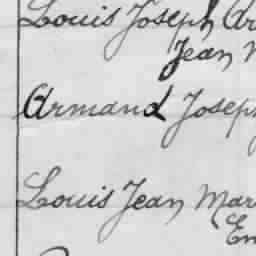 Louis Joseph Ar
Jean
Armand Joseph
Louis Jean Mar
Em